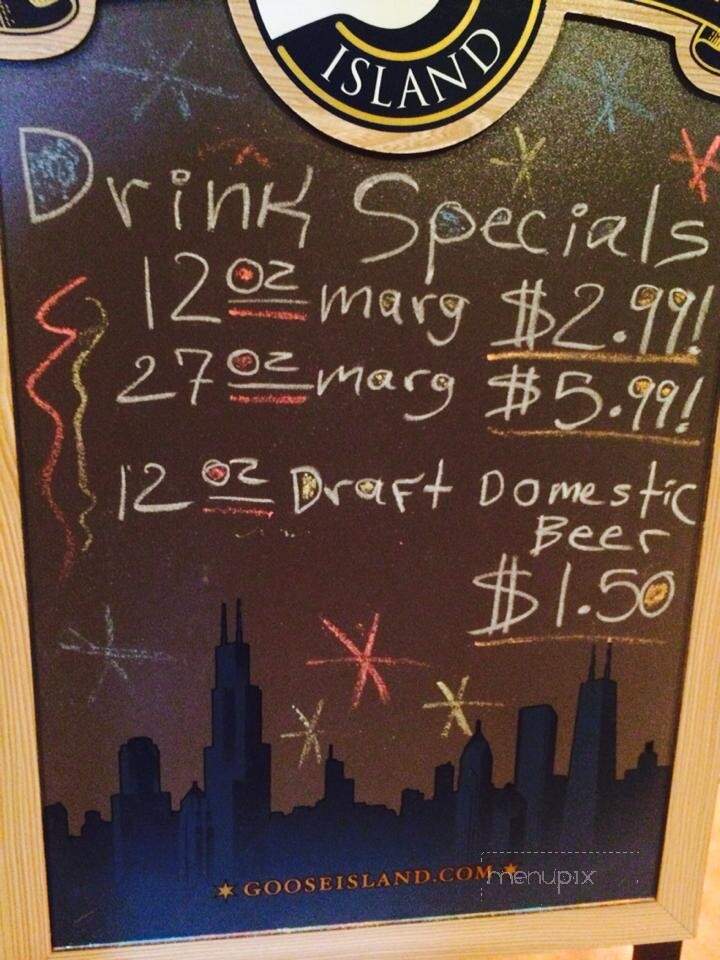 ISLAND
Drink Specials
12 oz marg $2.99!
27 oz marg $5.99!
12 oz Draft Domestic
Beer
$1.50
GOOSEISLAND.COM
menupix